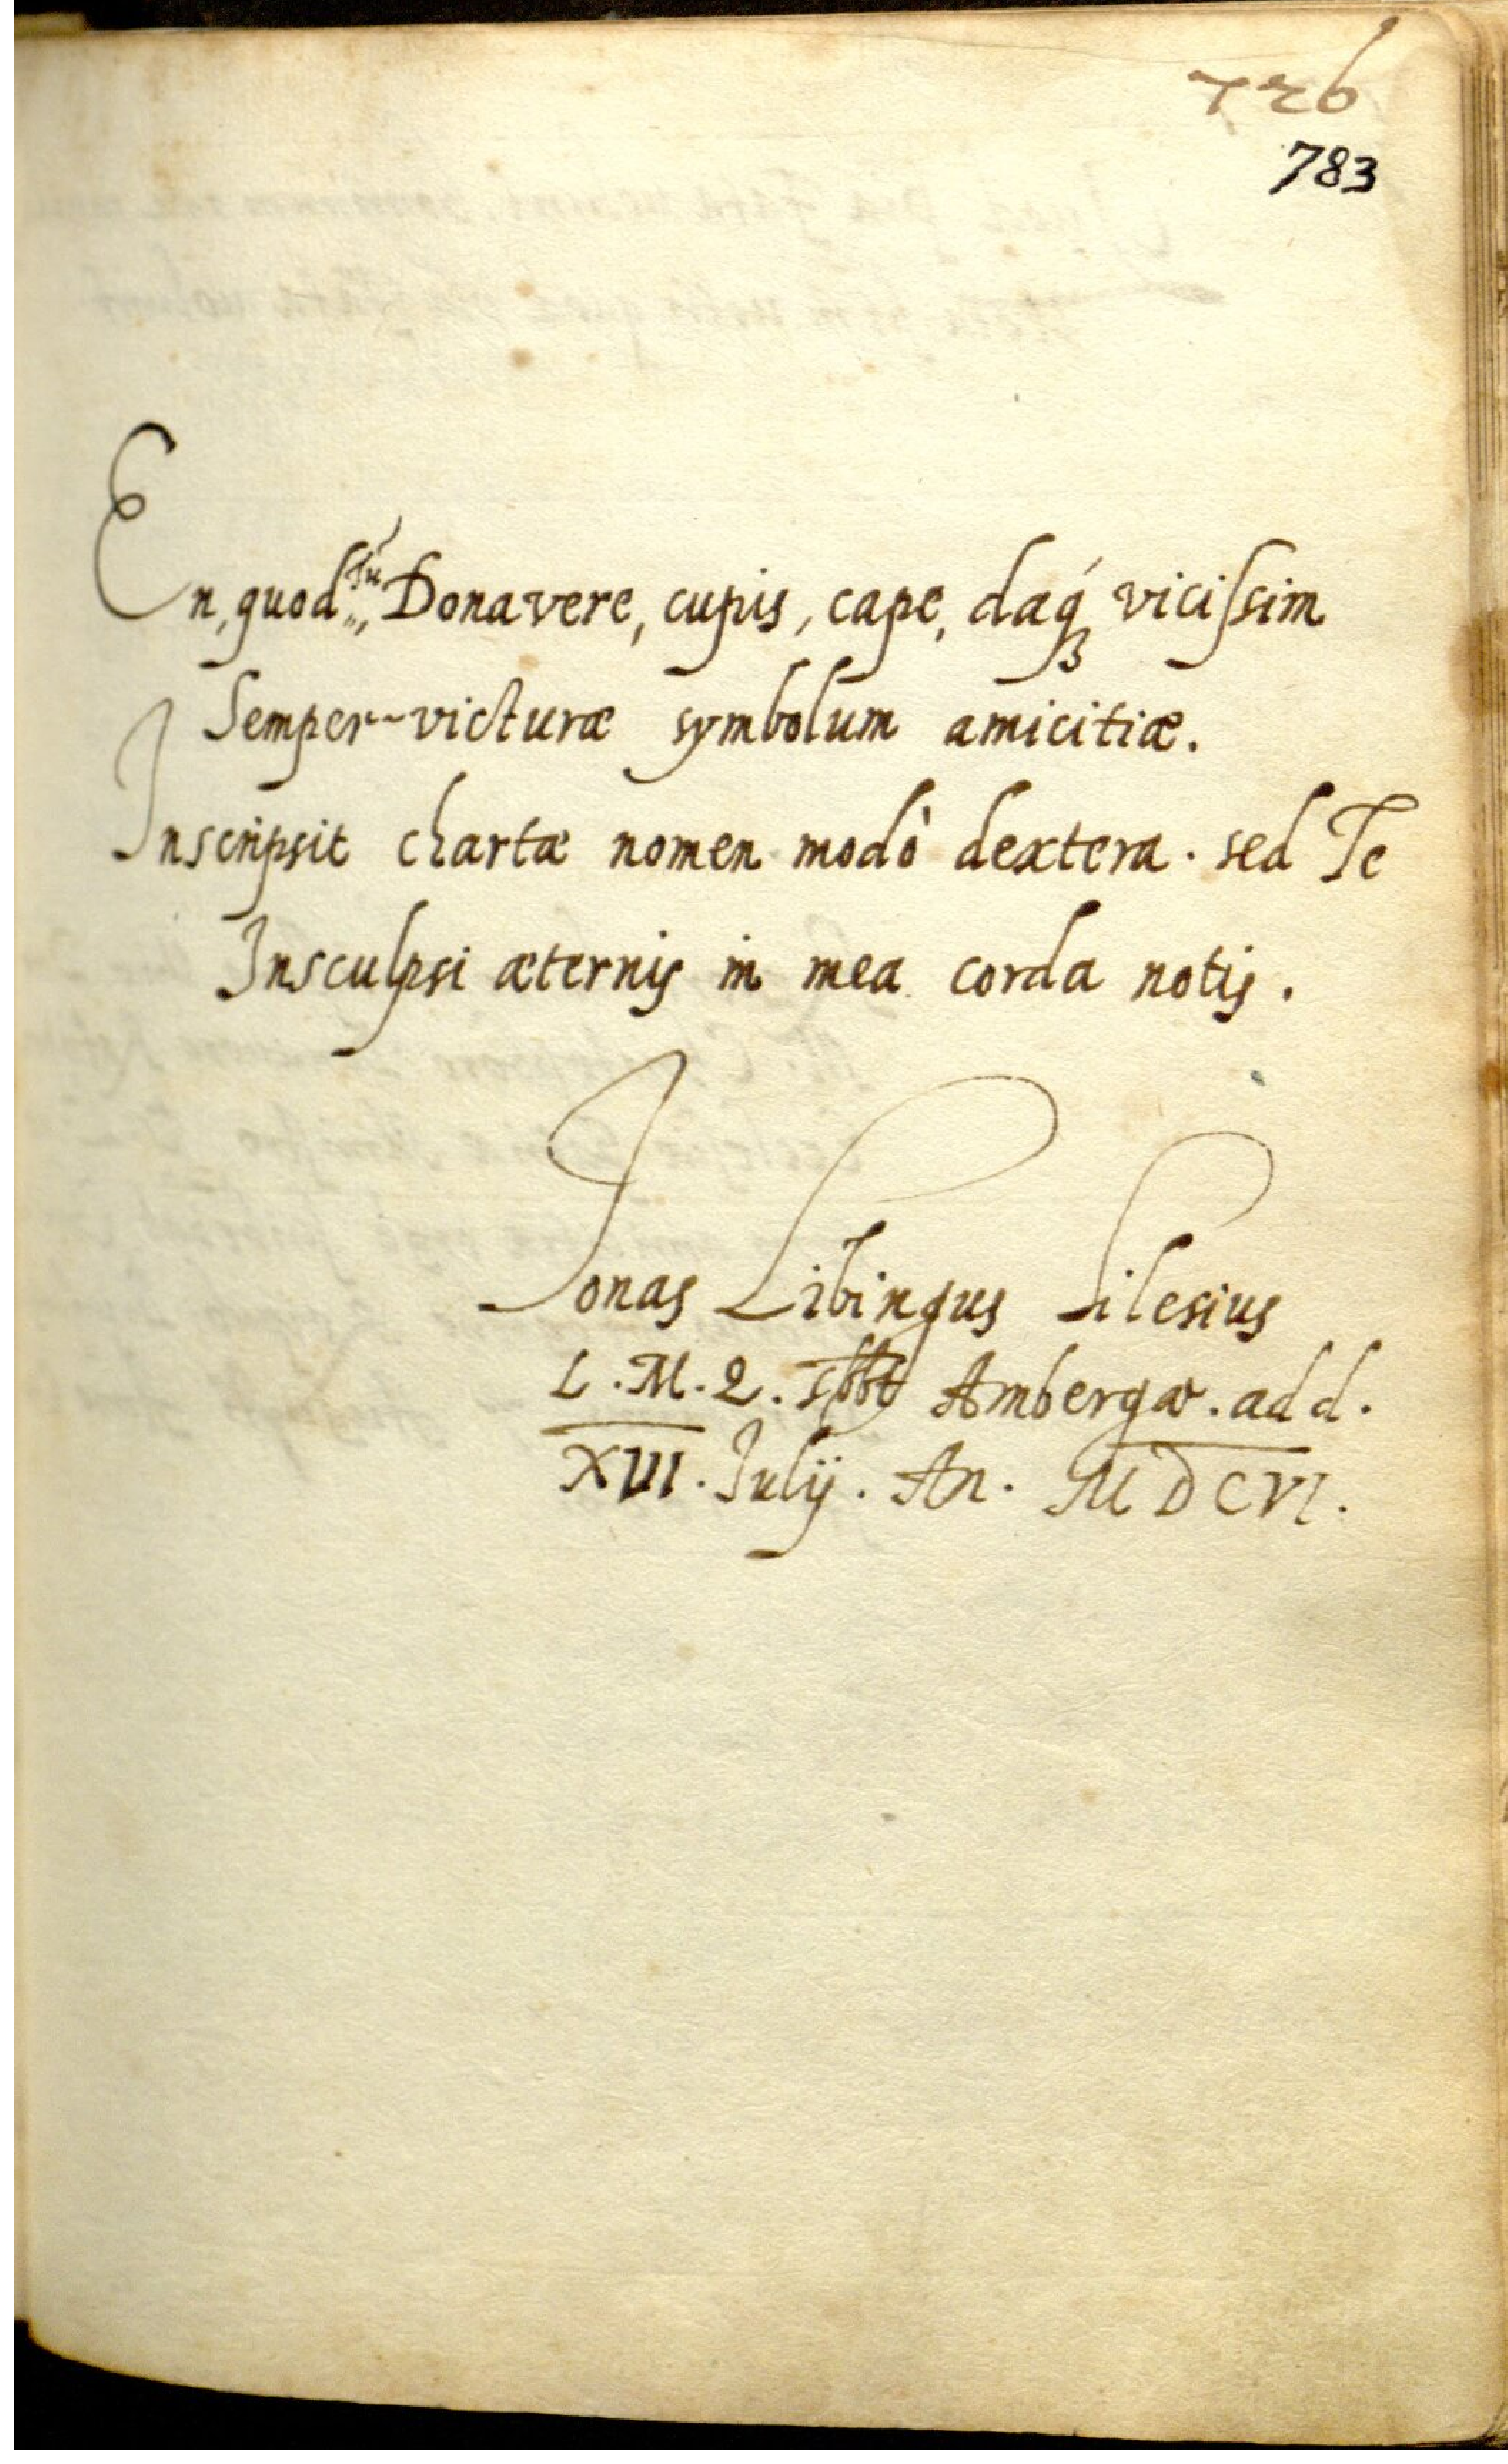 726
783
En, quod Tu Donavere, cupis, cape, daq́ꝫ vicissim
Semper-victuræ symbolum amicitiæ.
Inscripsit chartæ nomen modò dextera. sed Te
Insculpsi æternis in mea corda notis.
Jonas Libingus Silesius
L. M. Q. Ambergæ. add.
XIII. Julij. An. MDCVI.